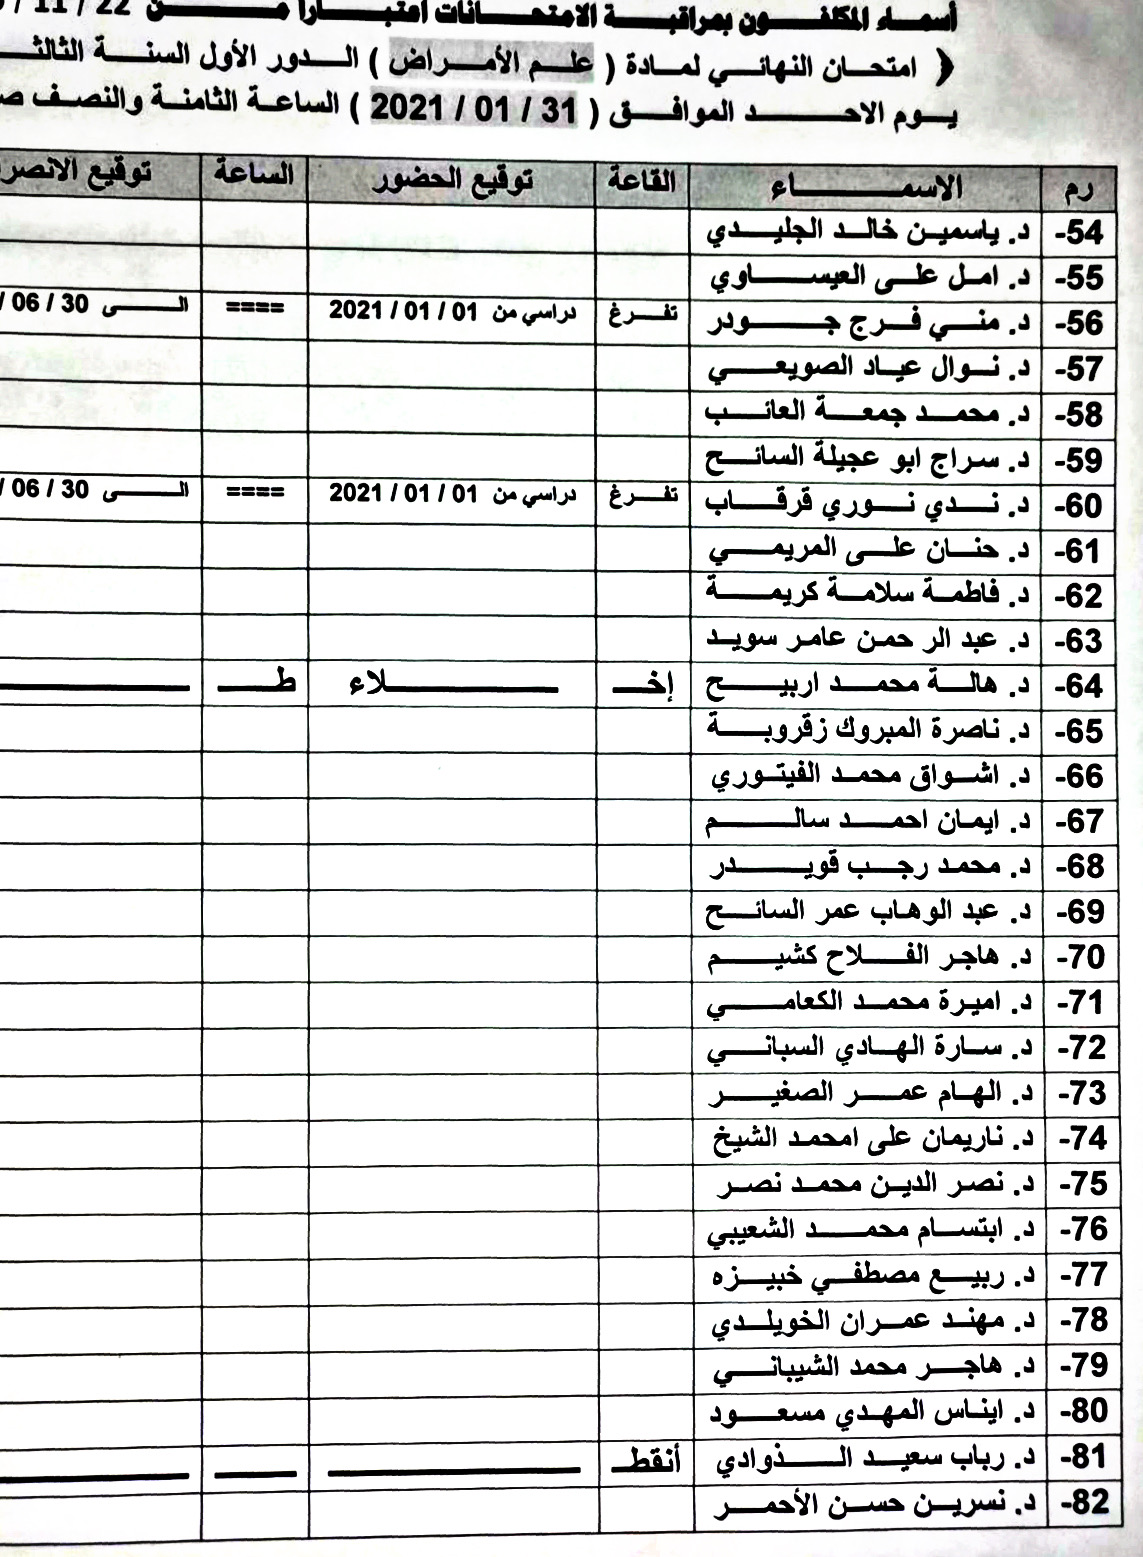 أسماء المكلفون بمراقبة الامتحانات اعتباراً من 22 / 11 /
﴿ امتحان النهائي لمادة ( علم الأمراض ) الدور الأول السنة الثالثـ
يوم الاحد الموافق ( 31 / 01 / 2021 ) الساعة الثامنة والنصف صـ
رم الاسماء القاعة توقيع الحضور الساعة توقيع الانصر
54- د. ياسمين خالد الجليدي
55- د. امل على العيساوي
56- د. مني فرج جودر تفرغ دراسي من 01 / 01 / 2021 ==== الى 30 / 06 /
57- د. نوال عياد الصويعي
58- د. محمد جمعة العائب
59- د. سراج ابو عجيلة السائح
60- د. ندي نوري قرقاب تفرغ دراسي من 01 / 01 / 2021 ==== الى 30 / 06 /
61- د. حنان على المريمي
62- د. فاطمة سلامة كريمة
63- د. عبد الرحمن عامر سويد
64- د. هالة محمد اربيح إخـ ـلاء ط
65- د. ناصرة المبروك زقروبة
66- د. اشواق محمد الفيتوري
67- د. ايمان احمد سالم
68- د. محمد رجب قويدر
69- د. عبد الوهاب عمر السائح
70- د. هاجر الفلاح كشيم
71- د. اميرة محمد الكعامي
72- د. سارة الهادي السباني
73- د. الهام عمر الصغير
74- د. ناريمان على امحمد الشيخ
75- د. نصر الدين محمد نصر
76- د. ابتسام محمد الشعيبي
77- د. ربيع مصطفي خبيزه
78- د. مهند عمران الخويلدي
79- د. هاجر محمد الشيباني
80- د. ايناس المهدي مسعود
81- د. رباب سعيد الذوادي أنقطـ
82- د. نسرين حسن الأحمر